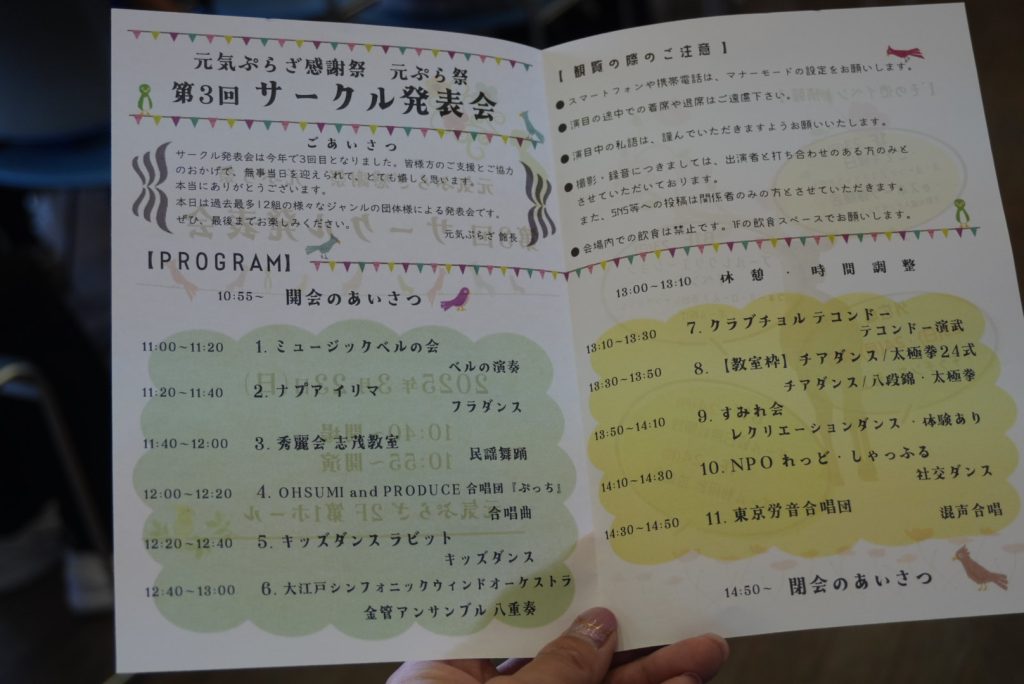 元気ぷらざ感謝祭 元ぷら祭
第3回 サークル発表会
ごあいさつ
サークル発表会は今年で3回目となりました。皆様方のご支援とご協力
のおかげで、無事当日を迎えられて、とても嬉しく思います。
本当にありがとうございます。
本日は過去最多12組の様々なジャンルの団体様による発表会です。
ぜひ、最後までお楽しみください。
元気ぷらざ 館長
【PROGRAM】
10:55~ 開会のあいさつ
11:00~11:20 1. ミュージックベルの会
ベルの演奏
11:20~11:40 2. ナプア イリマ
フラダンス
11:40~12:00 3. 秀麗会 志茂教室
民謡舞踊
12:00~12:20 4. OHSUMI and PRODUCE 合唱団『ぷっち』
合唱曲
12:20~12:40 5. キッズダンス ラビット
キッズダンス
12:40~13:00 6. 大江戸シンフォニックウィンドオーケストラ
金管アンサンブル 八重奏
【観覧の際のご注意】
●スマートフォンや携帯電話は、マナーモードの設定をお願いします。
●演目の途中での着席や退席はご遠慮下さい。
●演目中の私語は、謹んでいただきますようお願いいたします。
●撮影・録音につきましては、出演者と打ち合わせのある方のみと
させていただいております。
また、SNS等への投稿は関係者のみの方とさせていただきます。
●会場内での飲食は禁止です。1Fの飲食スペースでお願いします。
13:00~13:10 休憩・時間調整
13:10~13:30 7. クラブチョル テコンドー
テコンドー演武
13:30~13:50 8. 【教室枠】チアダンス/太極拳24式
チアダンス/八段錦・太極拳
13:50~14:10 9. すみれ会
レクリエーションダンス・体験あり
14:10~14:30 10. NPO れっど・しゃっふる
社交ダンス
14:30~14:50 11. 東京労音合唱団 混声合唱
14:50~ 閉会のあいさつ